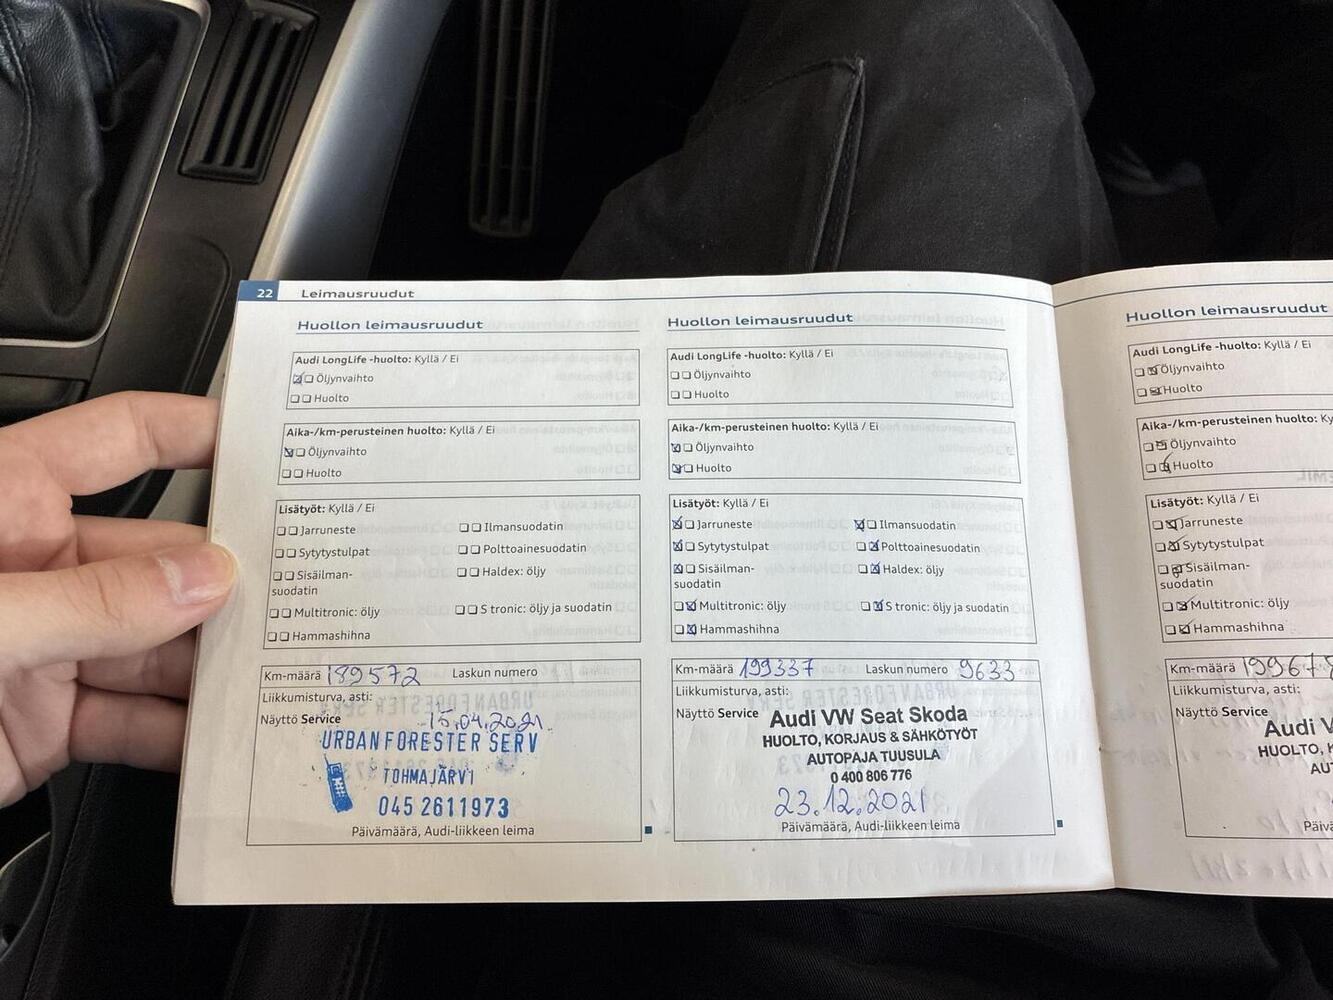 22 Leimausruudut
Huollon leimausruudut
Audi LongLife -huolto: Kyllä / Ei
Öljynvaihto
Huolto
Aika-/km-perusteinen huolto: Kyllä / Ei
Öljynvaihto
Huolto
Lisätyöt: Kyllä / Ei
Jarruneste
Ilmansuodatin
Sytytystulpat
Polttoainesuodatin
Sisäilman-
suodatin
Haldex: öljy
Multitronic: öljy
S tronic: öljy ja suodatin
Hammashihna
Km-määrä 189572 Laskun numero
Liikkumisturva, asti:
Näyttö Service
15.04.2021
URBAN FORESTER SERV
TOHMAJÄRVI
045 2611973
Päivämäärä, Audi-liikkeen leima
Huollon leimausruudut
Audi LongLife -huolto: Kyllä / Ei
Öljynvaihto
Huolto
Aika-/km-perusteinen huolto: Kyllä / Ei
Öljynvaihto
Huolto
Lisätyöt: Kyllä / Ei
Jarruneste
Ilmansuodatin
Sytytystulpat
Polttoainesuodatin
Sisäilman-
suodatin
Haldex: öljy
Multitronic: öljy
S tronic: öljy ja suodatin
Hammashihna
Km-määrä 199337 Laskun numero 9633
Liikkumisturva, asti:
Näyttö Service
Audi VW Seat Skoda
HUOLTO, KORJAUS & SÄHKÖTYÖT
AUTOPAJA TUUSULA
0 400 806 776
23.12.2021
Päivämäärä, Audi-liikkeen leima
Huollon leimausruudut
Audi LongLife -huolto: Kyllä / Ei
Öljynvaihto
Huolto
Aika-/km-perusteinen huolto: Ky
Öljynvaihto
Huolto
Lisätyöt: Kyllä / Ei
Jarruneste
Sytytystulpat
Sisäilman-
suodatin
Multitronic: öljy
Hammashihna
Km-määrä 199678
Liikkumisturva, asti:
Näyttö Service
Audi V
HUOLTO, K
AUT
Päivä